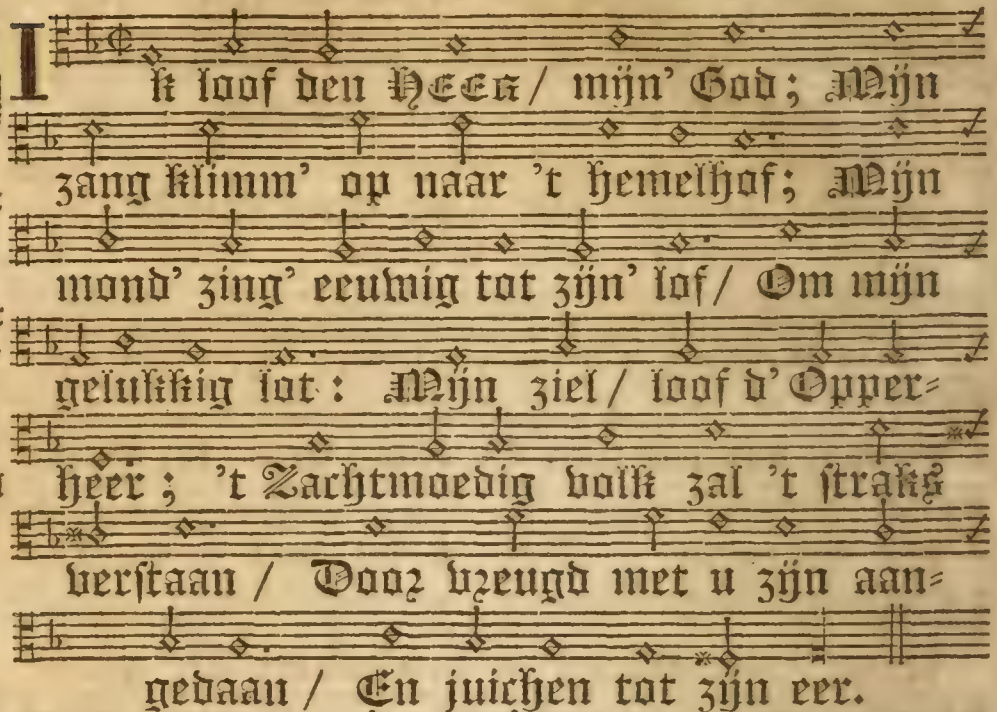 Ik loof den HEER / mijn' God; Mijn
zang klimm' op naar 't hemelhof; Mijn
mond' zing' eeuwig tot zijn' lof / Om mijn
gelukkig lot: Mijn ziel / loof d' Opper-
heer; 't Zachtmoedig volk zal 't straks
verstaan / Door vreugd met u zijn aan-
gedaan / En juichen tot zijn eer.